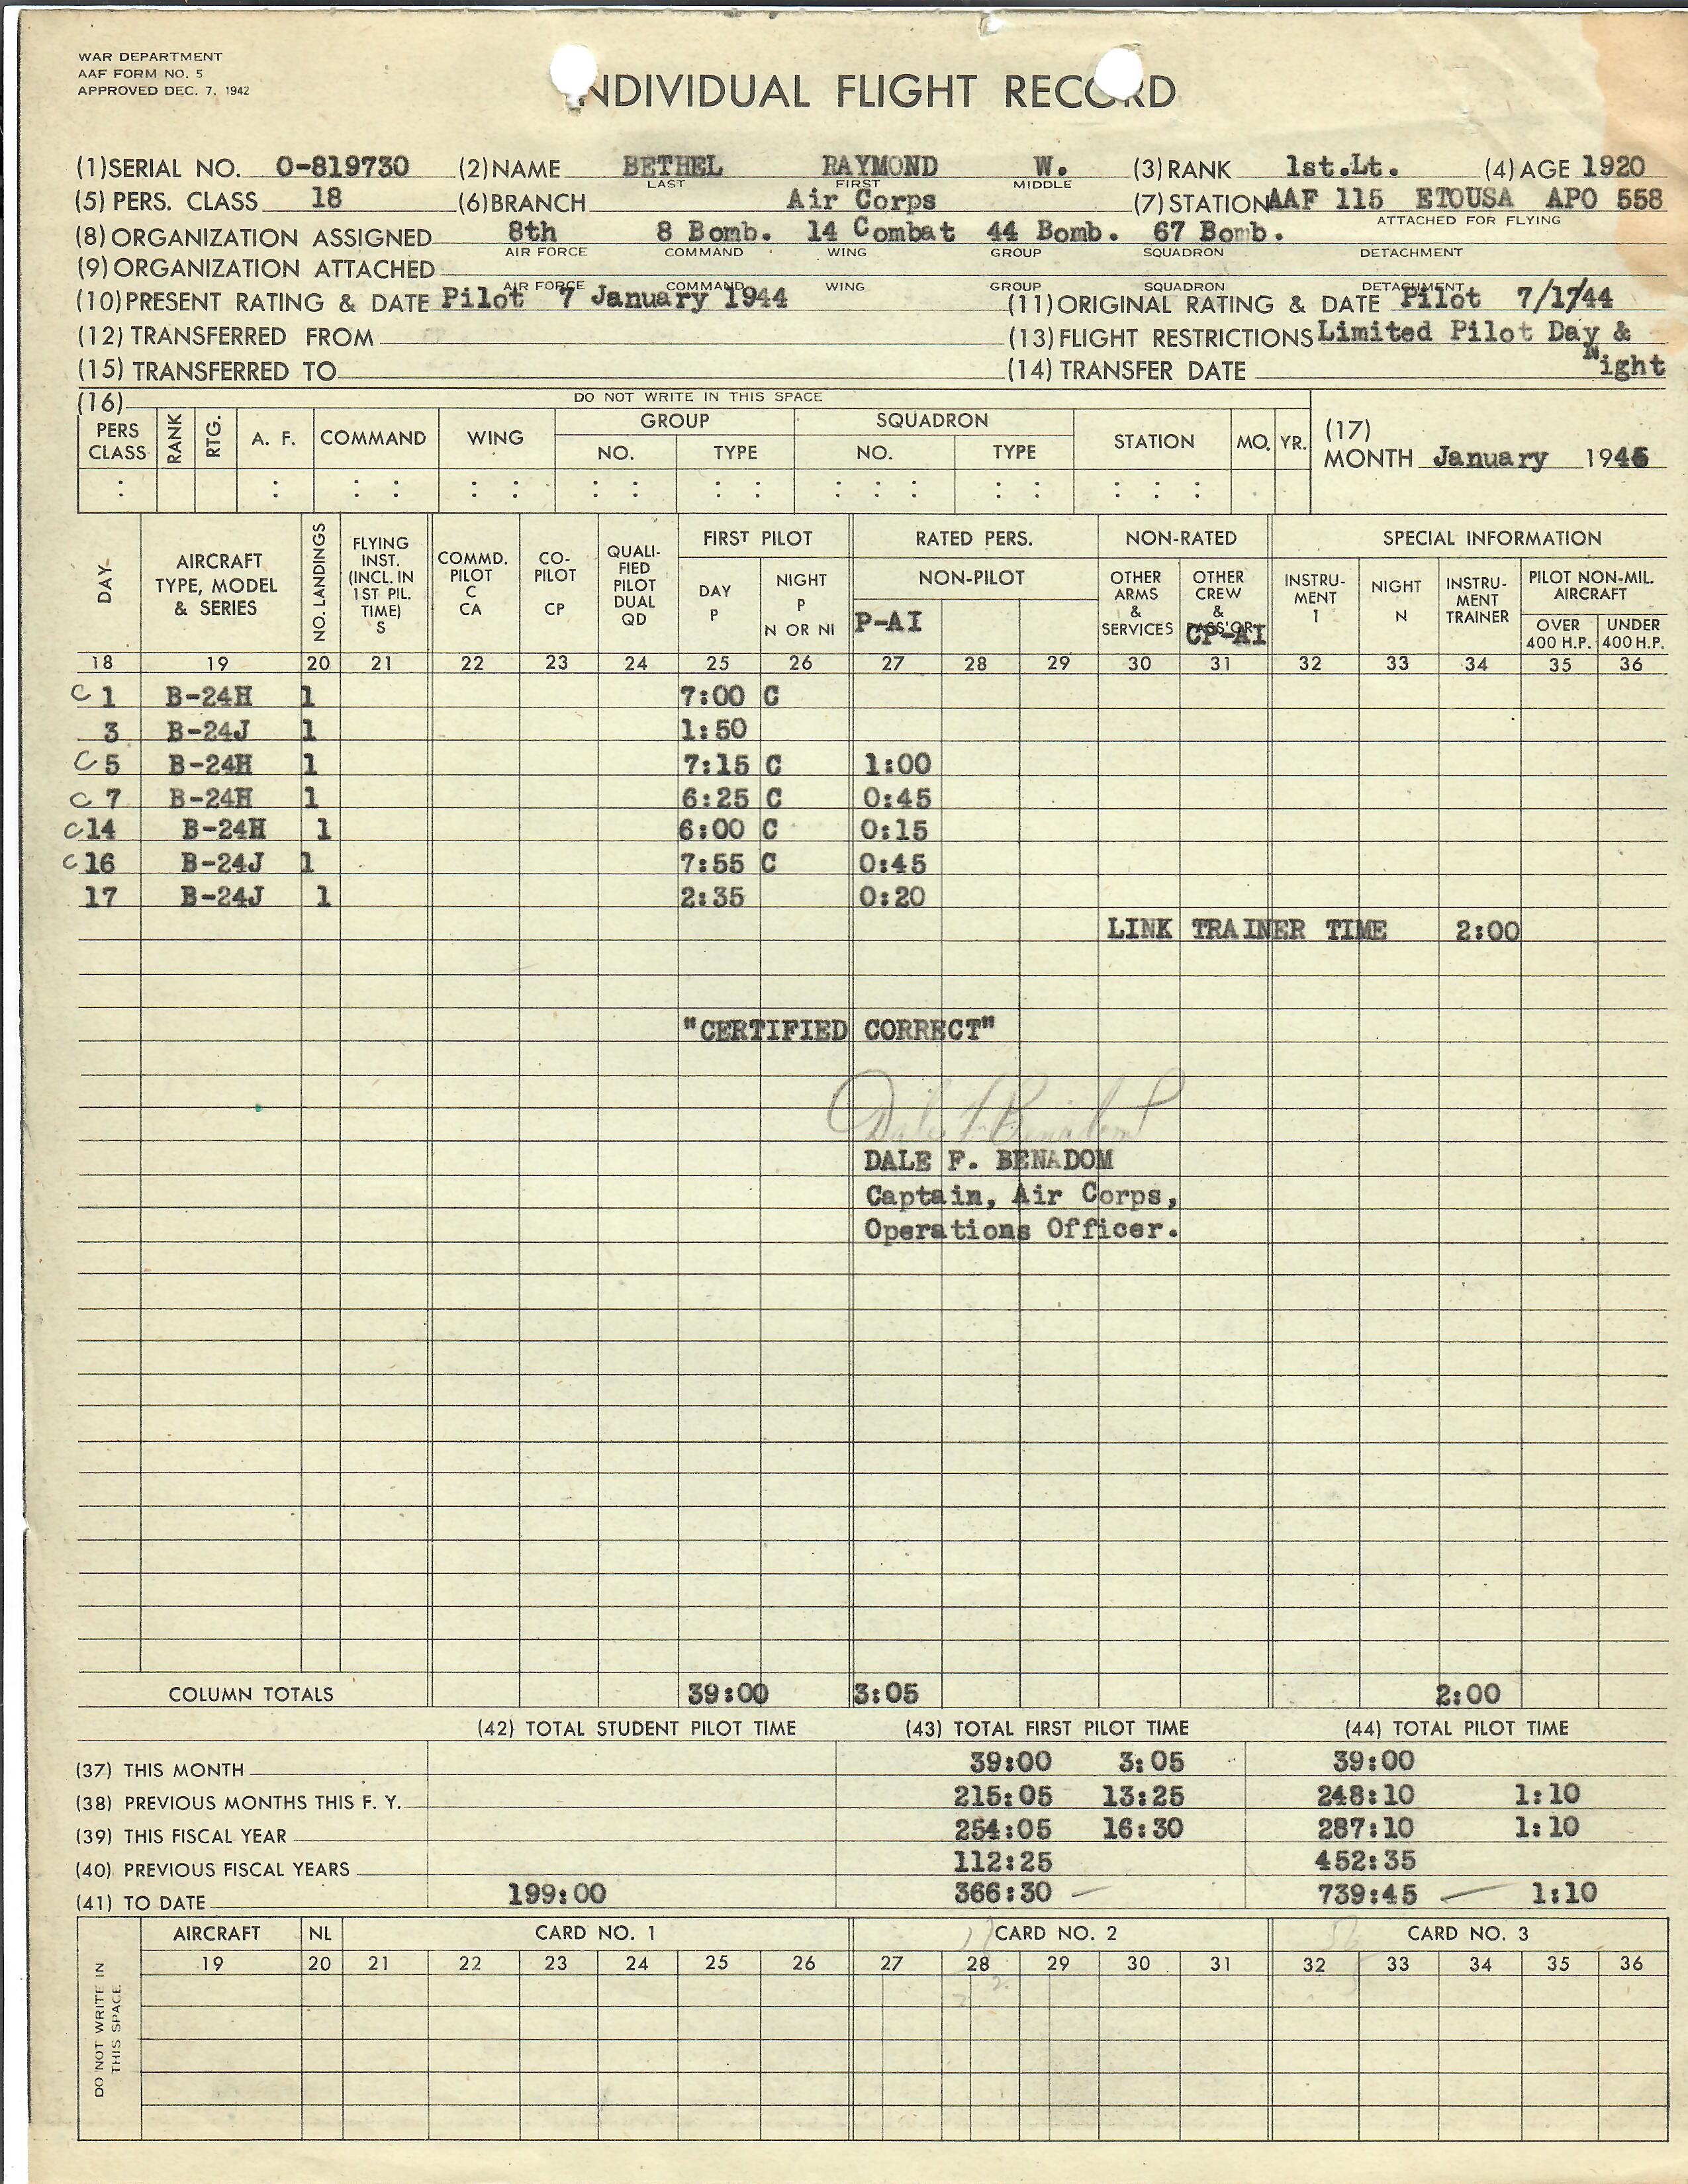 WAR DEPARTMENT
AAF FORM NO. 5
APPROVED DEC. 7, 1942
INDIVIDUAL FLIGHT RECORD
(1) SERIAL NO. 0-819730 (2) NAME BETHEL RAYMOND W. (3) RANK 1st.Lt. (4) AGE 1920
LAST FIRST MIDDLE
(5) PERS. CLASS 18 (6) BRANCH Air Corps (7) STATION AAF 115 ETOUSA APO 558
ATTACHED FOR FLYING
(8) ORGANIZATION ASSIGNED 8th 8 Bomb. 14 Combat 44 Bomb. 67 Bomb.
AIR FORCE COMMAND WING GROUP SQUADRON DETACHMENT
(9) ORGANIZATION ATTACHED
AIR FORCE COMMAND WING GROUP SQUADRON DETACHMENT
(10) PRESENT RATING & DATE Pilot 7 January 1944 (11) ORIGINAL RATING & DATE Pilot 7/1/44
(12) TRANSFERRED FROM (13) FLIGHT RESTRICTIONS Limited Pilot Day &
Night
(15) TRANSFERRED TO (14) TRANSFER DATE
(16) DO NOT WRITE IN THIS SPACE
PERS CLASS RANK RTG. A. F. COMMAND WING GROUP NO. TYPE SQUADRON NO. TYPE STATION MO. YR.
(17)
MONTH January 1945
DAY AIRCRAFT TYPE, MODEL & SERIES NO. LANDINGS FLYING INST. (INCL. IN 1ST PIL. TIME) S COMMD. PILOT C CA CO-PILOT CP QUALI-FIED PILOT DUAL QD FIRST PILOT DAY P NIGHT P N OR NI RATED PERS. NON-PILOT P-AI NON-RATED OTHER ARMS & SERVICES OTHER CREW & PASS'GR CP-AI SPECIAL INFORMATION INSTRU-MENT 1 NIGHT N INSTRU-MENT TRAINER PILOT NON-MIL. AIRCRAFT OVER 400 H.P. UNDER 400 H.P.
18 19 20 21 22 23 24 25 26 27 28 29 30 31 32 33 34 35 36
C 1 B-24H 1 7:00 C
3 B-24J 1 1:50
C 5 B-24H 1 7:15 C 1:00
C 7 B-24H 1 6:25 C 0:45
C 14 B-24H 1 6:00 C 0:15
C 16 B-24J 1 7:55 C 0:45
17 B-24J 1 2:35 0:20
LINK TRAINER TIME 2:00
"CERTIFIED CORRECT"
Dale F Benadom
DALE F. BENADOM
Captain, Air Corps,
Operations Officer.
COLUMN TOTALS 39:00 3:05 2:00
(42) TOTAL STUDENT PILOT TIME (43) TOTAL FIRST PILOT TIME (44) TOTAL PILOT TIME
(37) THIS MONTH 39:00 3:05 39:00
(38) PREVIOUS MONTHS THIS F. Y. 215:05 13:25 248:10 1:10
(39) THIS FISCAL YEAR 254:05 16:30 287:10 1:10
(40) PREVIOUS FISCAL YEARS 112:25 452:35
(41) TO DATE 199:00 366:30 739:45 1:10
AIRCRAFT NL CARD NO. 1 CARD NO. 2 CARD NO. 3
19 20 21 22 23 24 25 26 27 28 29 30 31 32 33 34 35 36
DO NOT WRITE IN THIS SPACE.